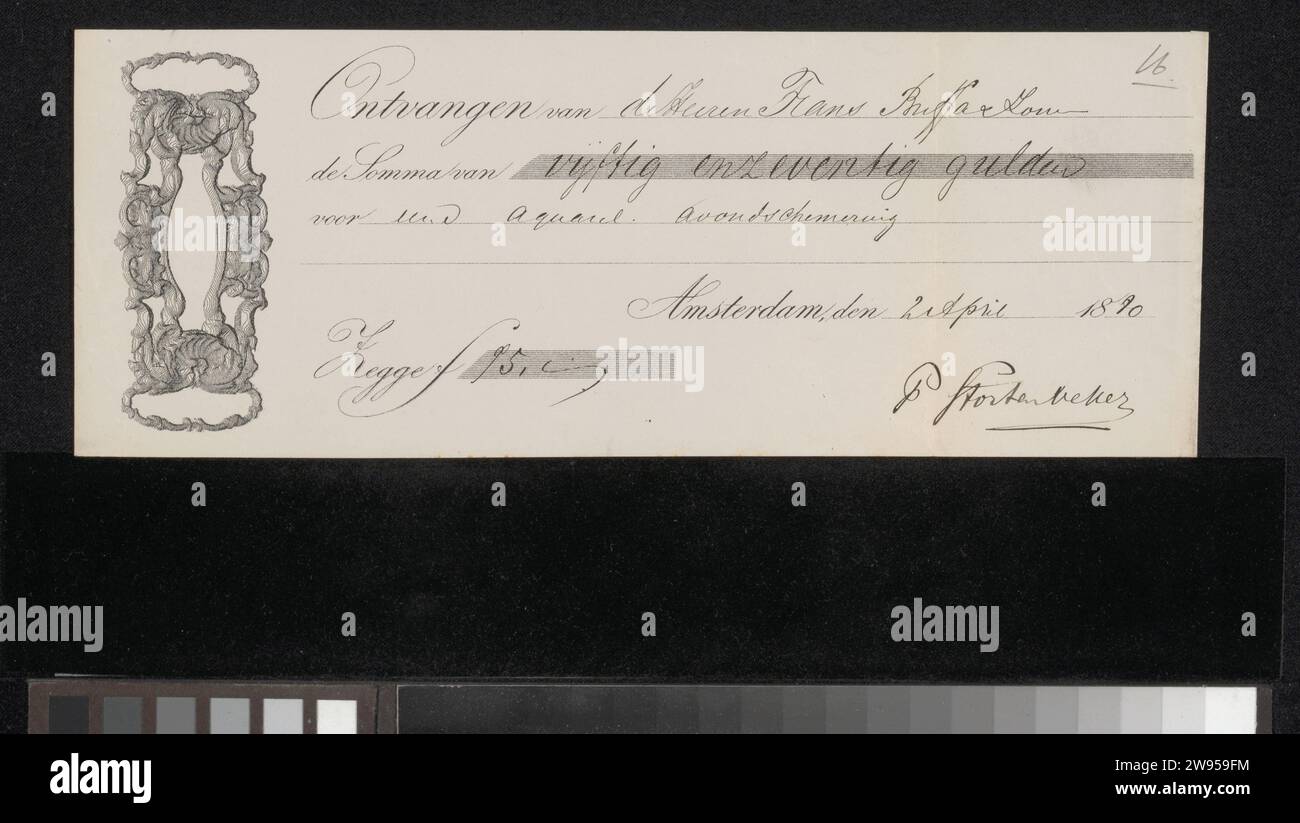 16.
Ontvangen van de Heeren Frans Buffa & Zonen
de Somma van vijftig en zeventig gulden
voor een aquarel. avondschemering
Amsterdam, den 2 April 1890
Zegge f 5,
P Stortenbeker
alamy
Image ID: 2W959FM
www.alamy.com